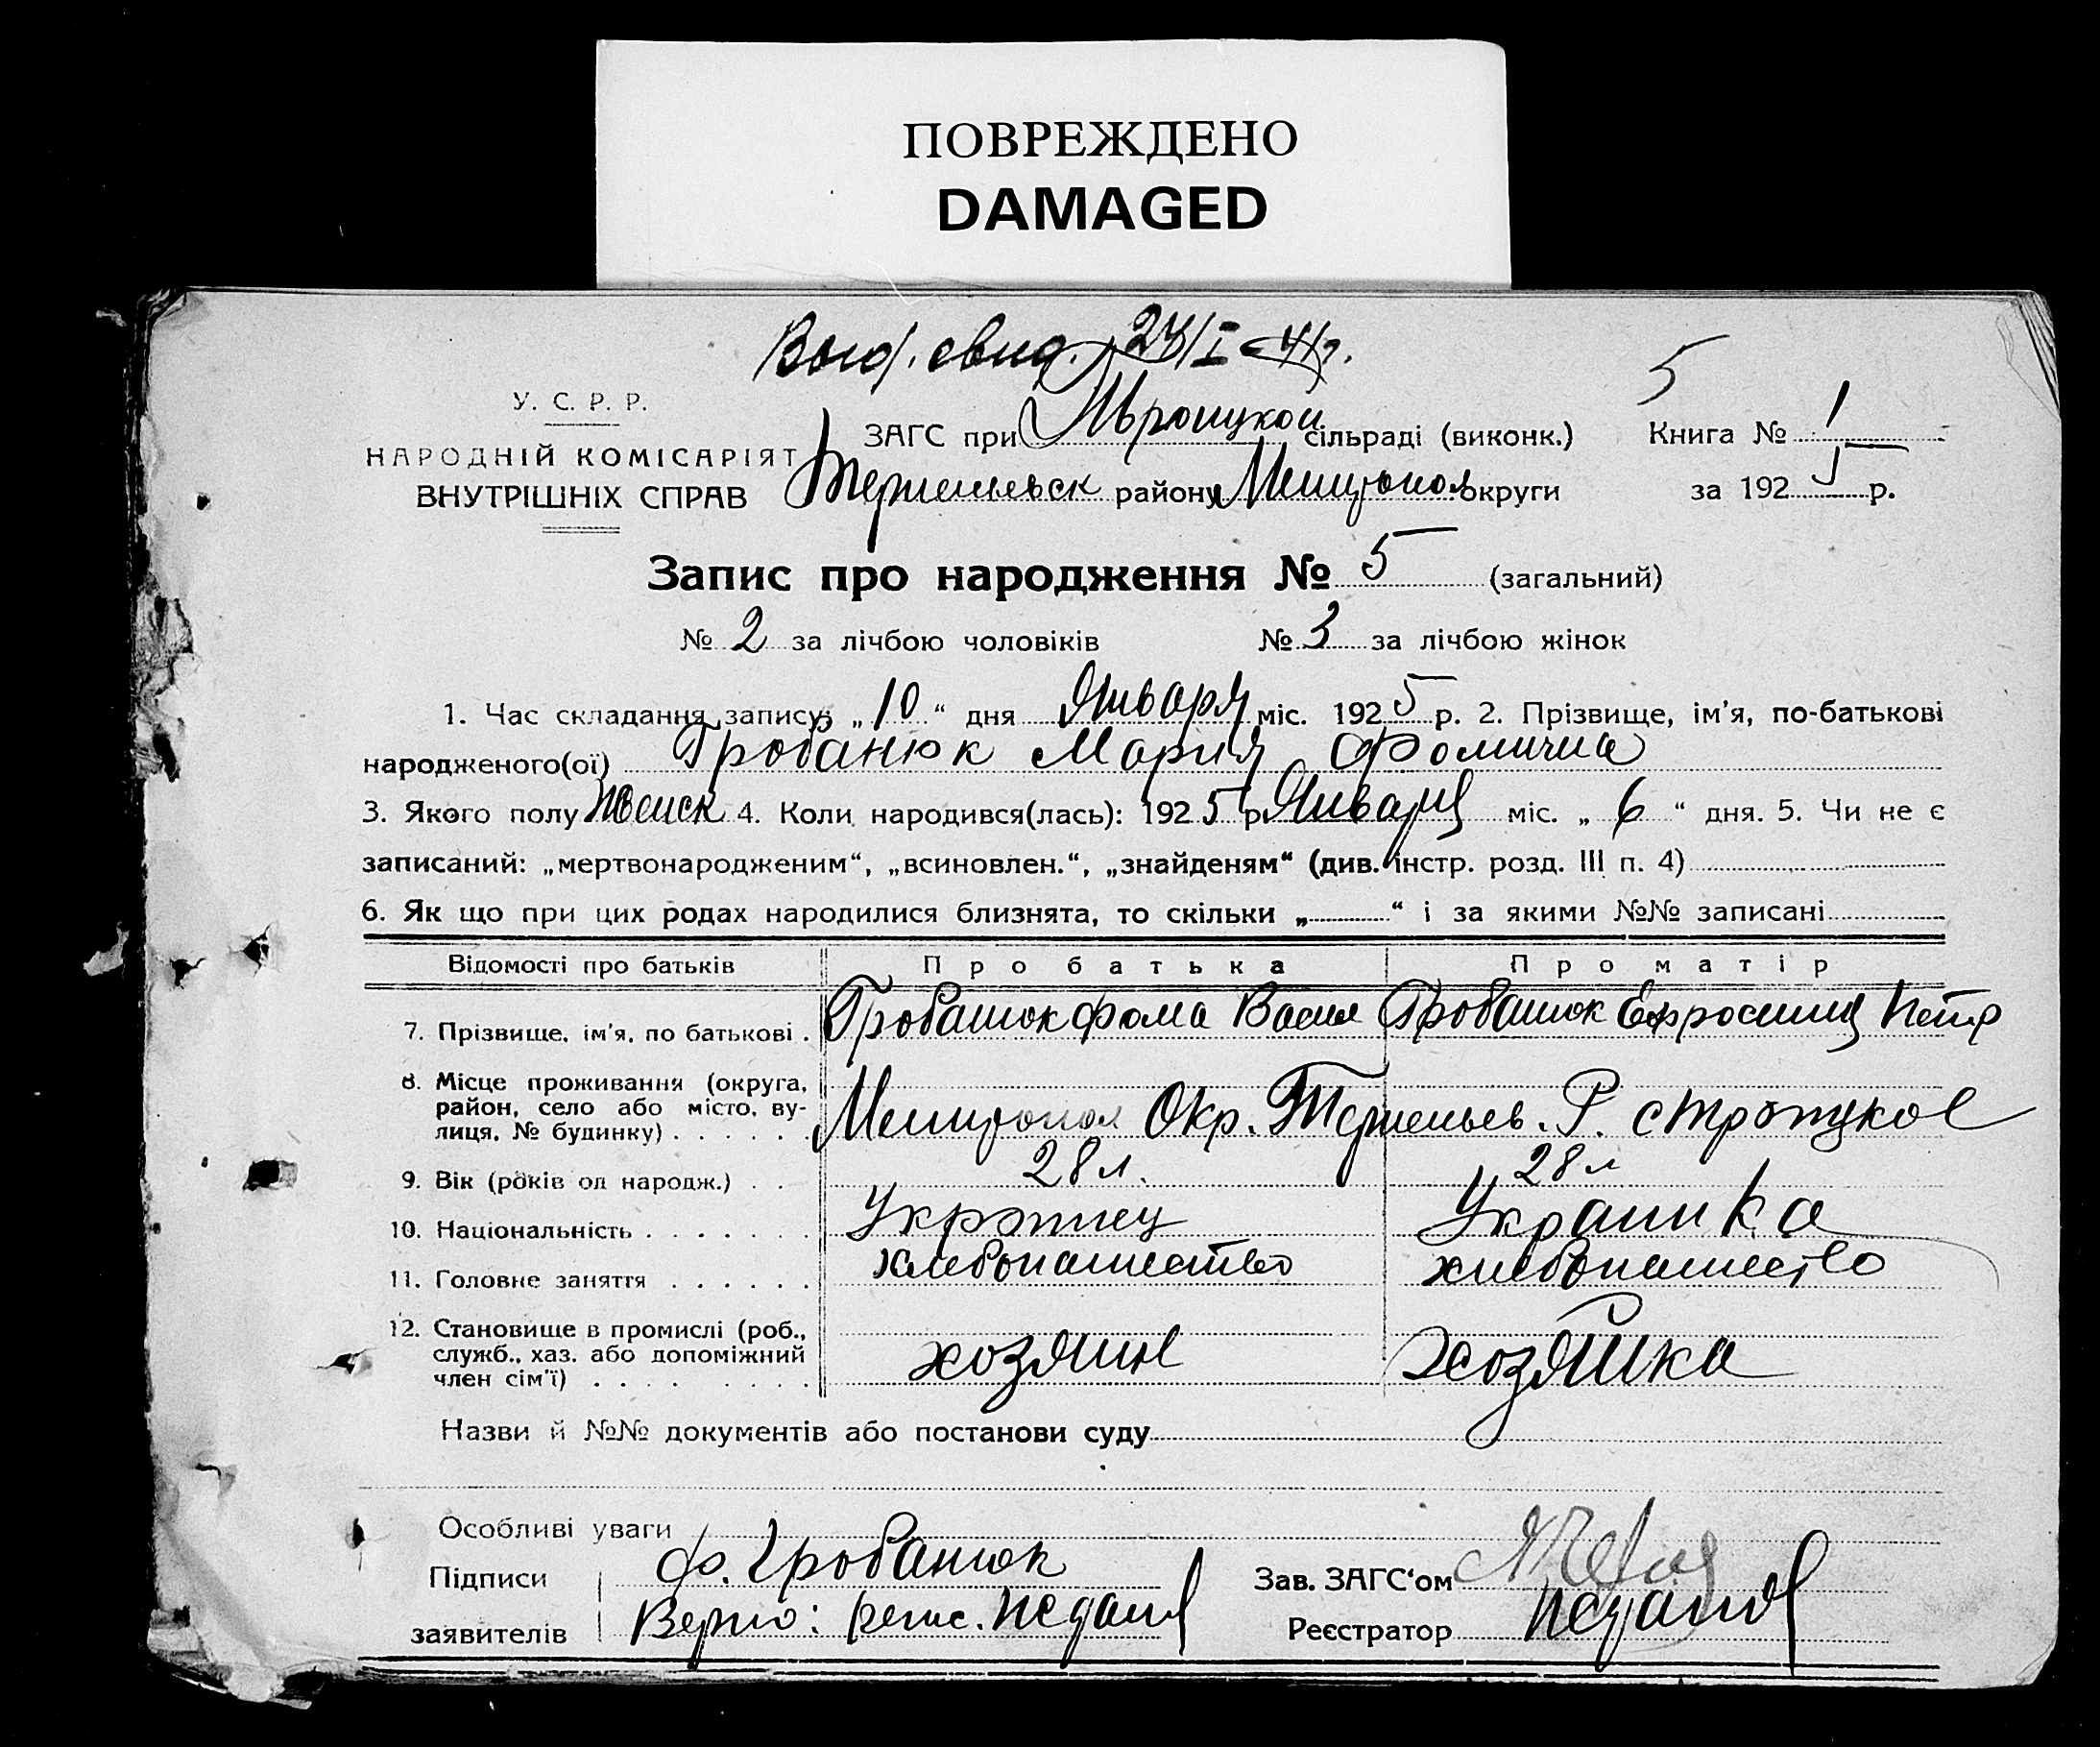 ПОВРЕЖДЕНО
DAMAGED
Выд. свид. 24/I-41г.
5
У. С. Р. Р.
НАРОДНІЙ КОМІСАРІЯТ
ВНУТРІШНІХ СПРАВ
ЗАГС при Троицкой сільраді (виконк.)
Книга № 1
район Мелитопол округи
за 1925 р.
Запис про народження № 5 (загальний)
№ 2 за лічбою чоловіків № 3 за лічбою жінок
1. Час складання запису: „10“ дня Января міс. 1925 р. 2. Прізвище, ім'я, по-батькові
народженого(ої) Гробанюк Мария Фомична
3. Якого полу Женск 4. Коли народився(лась): 1925 р. Января міс. „6“ дня. 5. Чи не є
записаний: „мертвонародженим“, „всиновлен.“, „знайденям“ (див. інстр. розд. III п. 4)
6. Як що при цих родах народилися близнята, то скільки „ “ і за якими №№ записані
Відомості про батьків Про батька Про матір
7. Прізвище, ім'я, по батькові . Гробанюк Фома Васил Гробанюк Ефросиния Петр
8. Місце проживання (округа,
район, село або місто, ву-
лиця, № будинку) . . . . . . Мелитопол Окр. Р. с Троицкое
9. Вік (років од народж.) . . 28 л. 28 л
10. Національність . . . . . . . Украинец Украинка
11. Головне заняття . . . . . . хлебопашество хлебопашество
12. Становище в промислі (роб.,
служб., хаз. або допоміжний
член сім'ї) . . . . . . . . хозяин хозяйка
Назви й №№ документів або постанови суду
Особливі уваги
Підписи Ф. Гробанюк Зав. ЗАГС'ом
заявителів Верно: Реєстратор